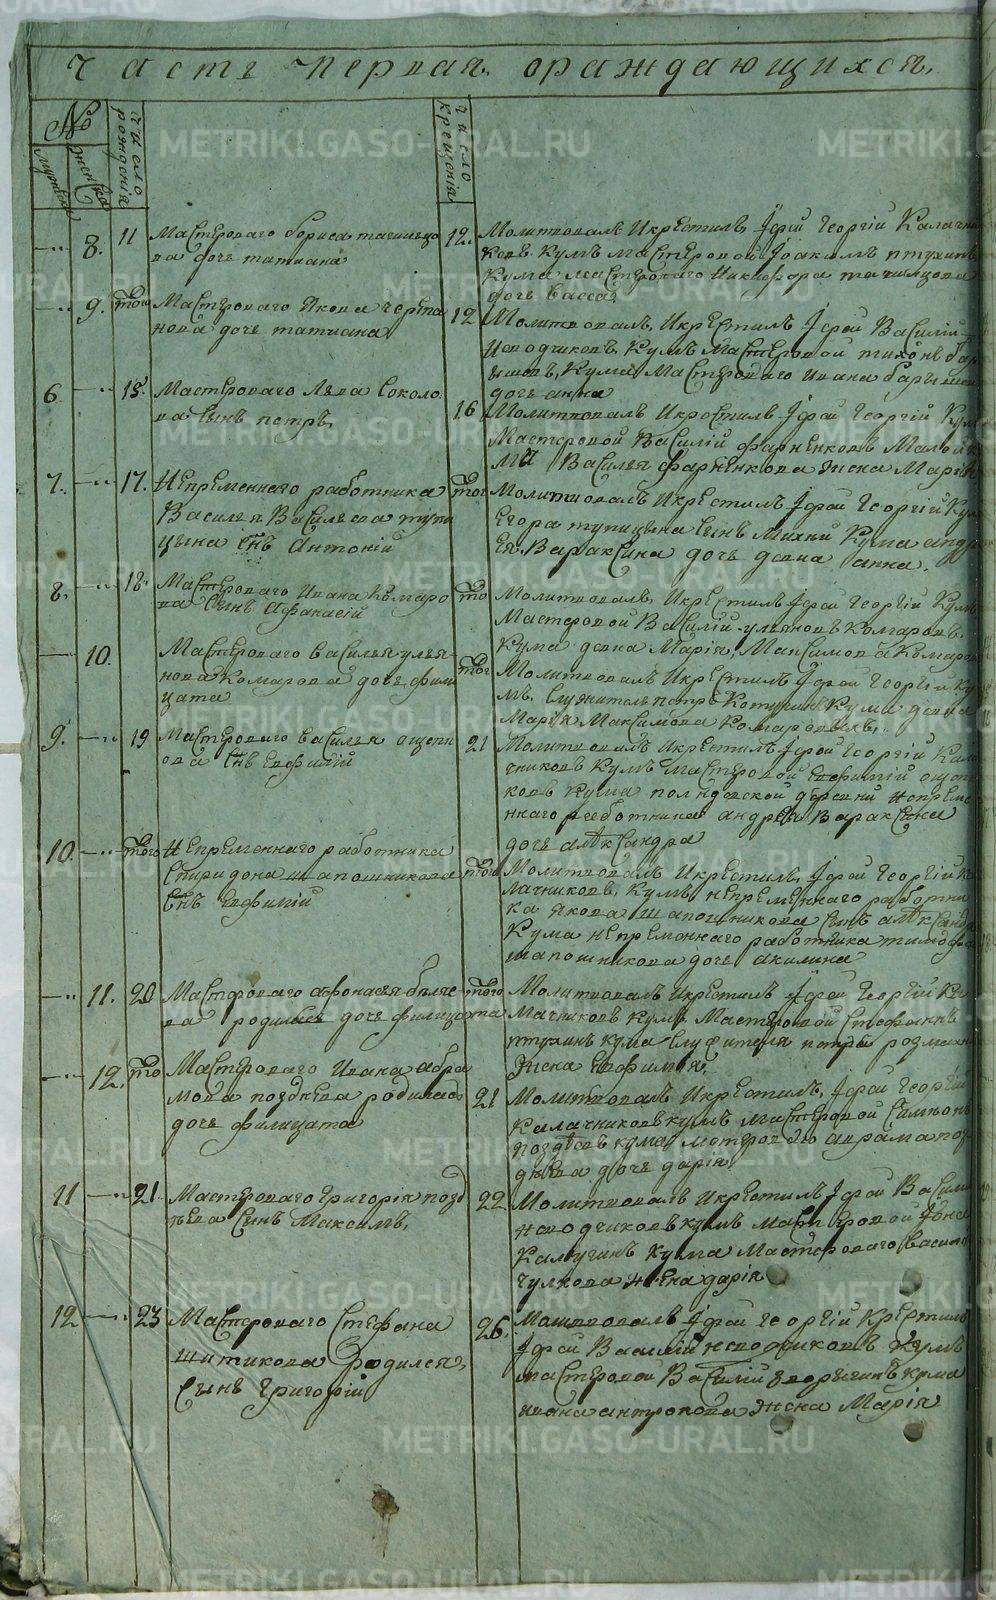 Часть первая, ораждающихся,
№
мужеска
женска
число рождения
число крещения
8. 11 Мастероваго бориса
ва дочь татиана
12. Молитвовалъ И крестилъ Іерей Георгій Калачни
ковъ кумъ мастеровой Іоакимъ птухинъ
Кума мастероваго Никифора
дочь васса
9. того Мастероваго Якова черта
нова дочь татиана
12 Молитвовалъ, И крестилъ Іерей Василій
Неводчиковъ, Кумъ Мастеровой тихонъ бар
ышевъ, Кума Мастероваго ивана барышев
дочь анна
6 15. Мастероваго Льва Соколо
ва сынъ петръ,
16 Молитвовалъ И крестилъ Іерей Георгій Кумъ
Мастеровой Василій фарненковъ
Василья фарненкова жена Марія
7. 17. Непременнаго работника
Василья Васильева тупи
цына Снъ Антоній
того Молитвовалъ И крестилъ Іерей Георгій Кум
Егора тупицына сынъ Кума андр
ея Вараксина дочь девка анна.
8. 18. Мастероваго Ивана Комаро
ва сынъ Афанасій
того Молитвовалъ, И крестилъ Іерей Георгій Кумъ
Мастеровой Василій ульяновъ Комаровъ.
Кума девка Марія, Максимова Комаро
10. Мастероваго василья улья-
нова Комарова дочь фили
цата
того Молитвовалъ И крестилъ Іерей Георгій Ку
мъ. Служитель петръ Кума девка
Марія Максимова Комаровыхъ.
9. 19 Мастероваго василья ощепк
ова Снъ Евфимій
21 Молитвовалъ И крестилъ Іерей Георгій Кала
чниковъ Кумъ Мастеровой Евфимій ощеп
ковъ Кума деревни непреме
ннаго работника андрея Вараксина
дочь алѣксандра
10. того Непременнаго работника
Спиридона шапошникова
Снъ Евфимій
того Молитвовалъ И крестилъ, Іерей Георгій Ка
лачниковъ, Кумъ, непременнаго работни
ка якова шапошникова сынъ алѣксандр
Кума непременнаго работника тимофея
шапошникова дочь акилина
11. 20 Мастероваго афонасья бѣляе
ва родилась дочь филицата
того Молитвовалъ И крестилъ Іерей Георгій Ка
лачниковъ кумъ Мастеровой Стефанъ
птухинъ кума Служителя петра
жена Евфимія,
12. того Мастероваго Ивана абра
мова позднева родилась
дочь филицата
21 Молитвовалъ И крестилъ, Іерей Георгій
Калачниковъ кумъ мастеровой Симионъ
поздѣевъ кума мастероваго аврама поз
дѣева дочь дарія
11 21. Мастероваго Григорія позд
ѣева сынъ Максимъ,
22 Молитвовалъ И крестилъ Іерей Василій
неводчиковъ кумъ мастеровой Іона
Калугинъ кума Мастероваго Василь
чулкова жена дарія
12 23 Мастероваго Стефана
шитикова родился
Сынъ Григорій
26. Молитвовалъ Іерей Георгій Крестилъ
Іерей Василій неводчиковъ Кумъ
мастеровой Василій кума
ивана антропова жена Марія
METRIKI.GASO-URAL.RU